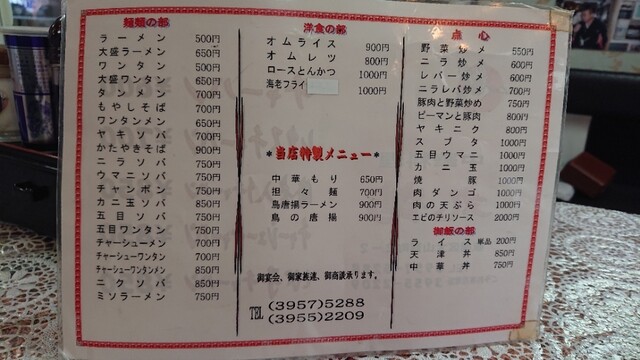 麺類の部
ラーメン 500円
大盛ラーメン 650円
ワンタン 500円
大盛ワンタン 650円
タンメン 700円
もやしそば 700円
ワンタンメン 650円
ヤキソバ 700円
かたやきそば 900円
ニラソバ 750円
ウマニソバ 750円
チャンポン 750円
カニ玉ソバ 850円
五目ソバ 750円
五目ワンタン 750円
チャーシューメン 700円
チャーシューワンタン 700円
チャーシューワンタンメン 850円
ニクソバ 850円
ミソラーメン 750円
洋食の部
オムライス 900円
オムレツ 800円
ロースとんかつ 1000円
海老フライ 1000円
＊当店特製メニュー＊
中華もり 650円
担々麺 700円
鳥唐揚ラーメン 900円
鳥の唐揚 900円
御宴会、御家族連、御商談承ります。
TEL (3957)5288
(3955)2209
点心
野菜炒メ 550円
ニラ炒メ 600円
レバー炒メ 600円
ニラレバ炒メ 700円
豚肉と野菜炒め 750円
ピーマンと豚肉 800円
ヤキニク 800円
スブタ 1000円
五目ウマニ 1000円
カニ玉 1000円
焼豚 1000円
肉ダンゴ 1000円
肉の天ぷら 1000円
エビのチリソース 2000円
御飯の部
ライス 単品 200円
天津丼 850円
中華丼 750円